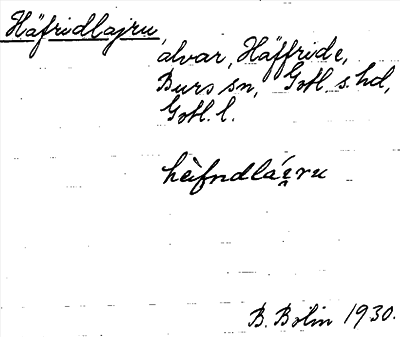 Häfridlajru,
alvar, Häffride,
Burs sn, Gotl. s. hd,
Gotl. l.
hèifndlái̯ru
B. Bolin 1930.